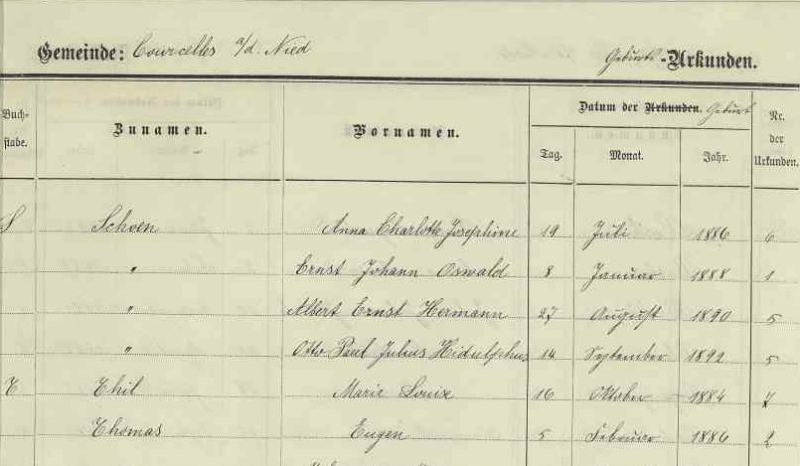 Gemeinde: Courcelles a/d. Nied Geburts-Urkunden.
Buch-stabe. Zunamen. Vornamen. Datum der Urkunden. Geburt Nr. der Urkunden.
Tag. Monat. Jahr.
S Schoen Anna Charlotte Josephine 19 Juli 1886 6
" Ernst Johann Oswald 8 Januar 1888 1
" Albert Ernst Hermann 27 August 1890 5
" Otto Paul Julius Hidulphus 14 September 1892 5
T Thil Marie Louise 16 Oktober 1884 7
Thomas Eugen 5 Februar 1886 2